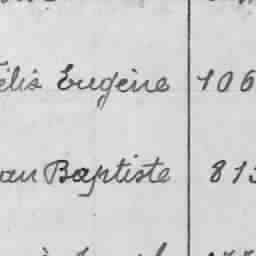 élix Eugène 106
an Baptiste 813